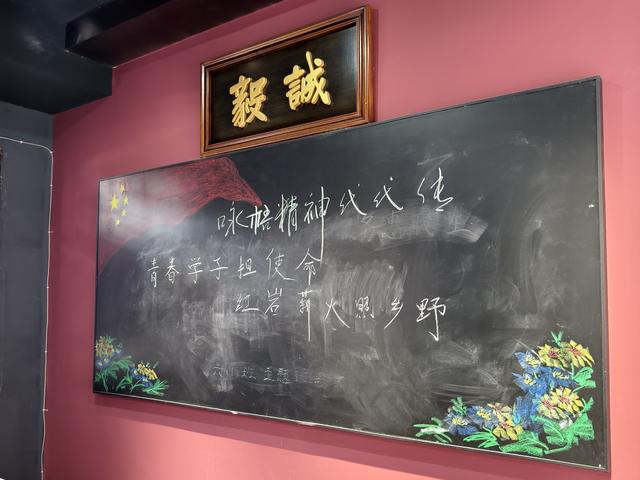 誠毅
咏梧精神代代传
青春学子担使命
红岩薪火照乡野
班 主题